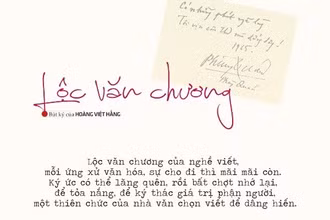 1965
Lộc văn chương
Bút ký của HOÀNG VIỆT HẰNG
Lộc văn chương của nghề viết,
mỗi ứng xử văn hóa, sự cho đi thì mãi mãi còn.
Ký ức có thể lãng quên, rồi bất chợt nhớ lại,
để tỏa nắng, để ký thác giá trị phận người,
một thiên chức của nhà văn chọn viết để dâng hiến.